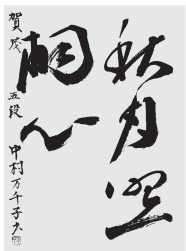 秋月照
禅心
賀茂 五段 中村万千子书